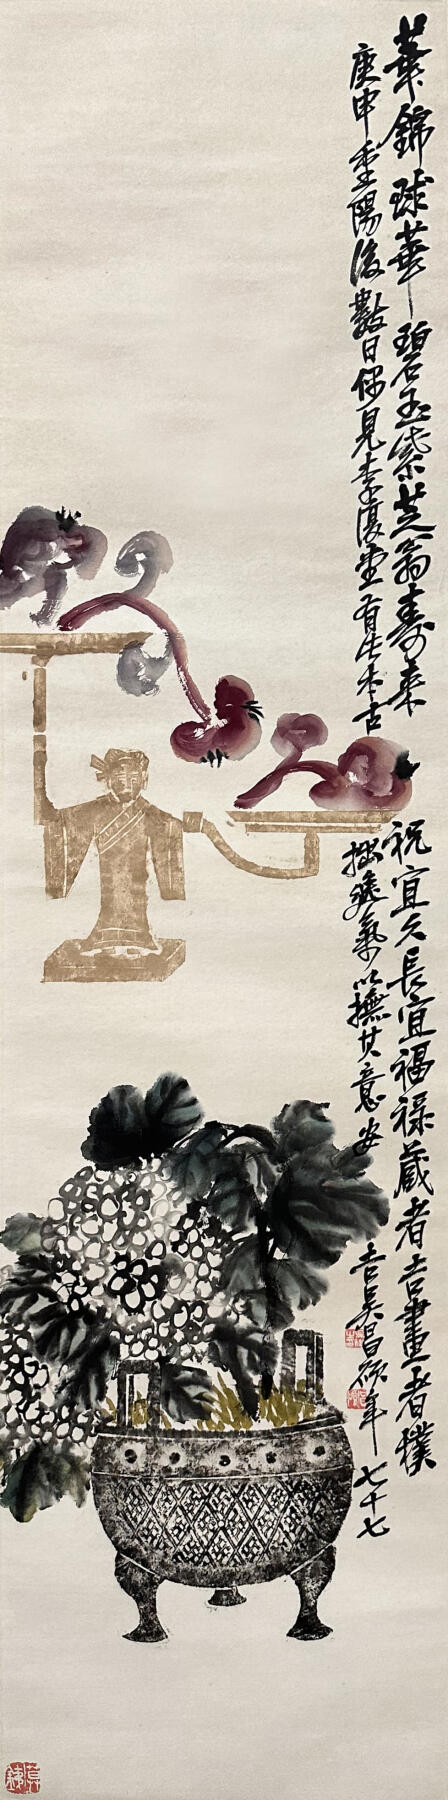 華錦球華碧玉紫芝翁壽來祝宜久長宜福祿藏者吉畫者樸
庚申重陽後數日偶見李復堂有此本古拙逸氣以撫其意安吉吴昌碩年七十七